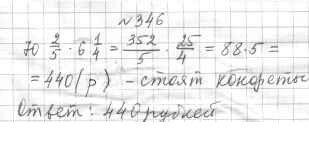 №346
70 2/5 · 6 1/4 = 352/5 · 25/4 = 88·5 =
= 440 (р) - стоят конфеты
Ответ: 440 рублей